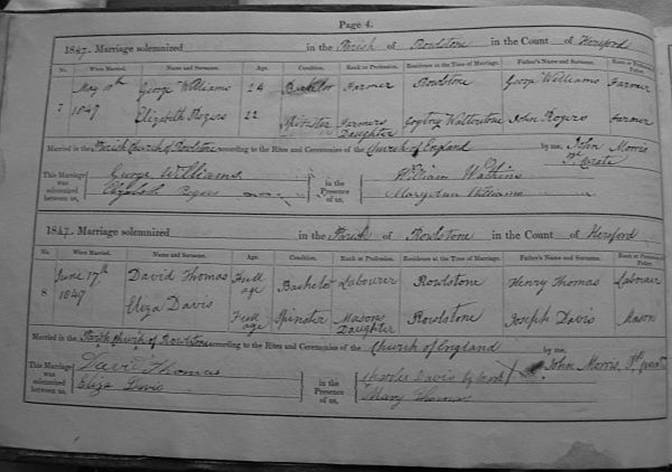 Page 4.
1847. Marriage solemnized in the Parish of Rowlstone in the Count of Hereford
No. When Married. Name and Surname. Age. Condition. Rank or Profession. Residence at the Time of Marriage. Father's Name and Surname. Rank or Profession
7 May 1847 George Williams 24 Bachelor Farmer Rowlstone George Williams Farmer
Elizabeth Rogers 22 Spinster Farmers Daughter John Rogers Farmer
Married in the Parish Church of Rowlstone according to the Rites and Ceremonies of the Church of England by me, John Morris
This Marriage was solemnized between us, George Williams in the Presence of us, William Watkins
Elizabeth Rogers Mary Ann Williams
1847. Marriage solemnized in the Parish of Rowlstone in the Count of Hereford
No. When Married. Name and Surname. Age. Condition. Rank or Profession. Residence at the Time of Marriage. Father's Name and Surname. Rank or Profession
8 June 17th 1847 David Thomas Full age Bachelor Labourer Rowlstone Henry Thomas Labourer
Eliza Davis Full age Spinster Masons Daughter Rowlstone Joseph Davis Mason
Married in the Parish Church of Rowlstone according to the Rites and Ceremonies of the Church of England by me, John Morris,
This Marriage was solemnized between us, David Thomas in the Presence of us, Charles Davis by mark X
Eliza Davis Mary Thomas